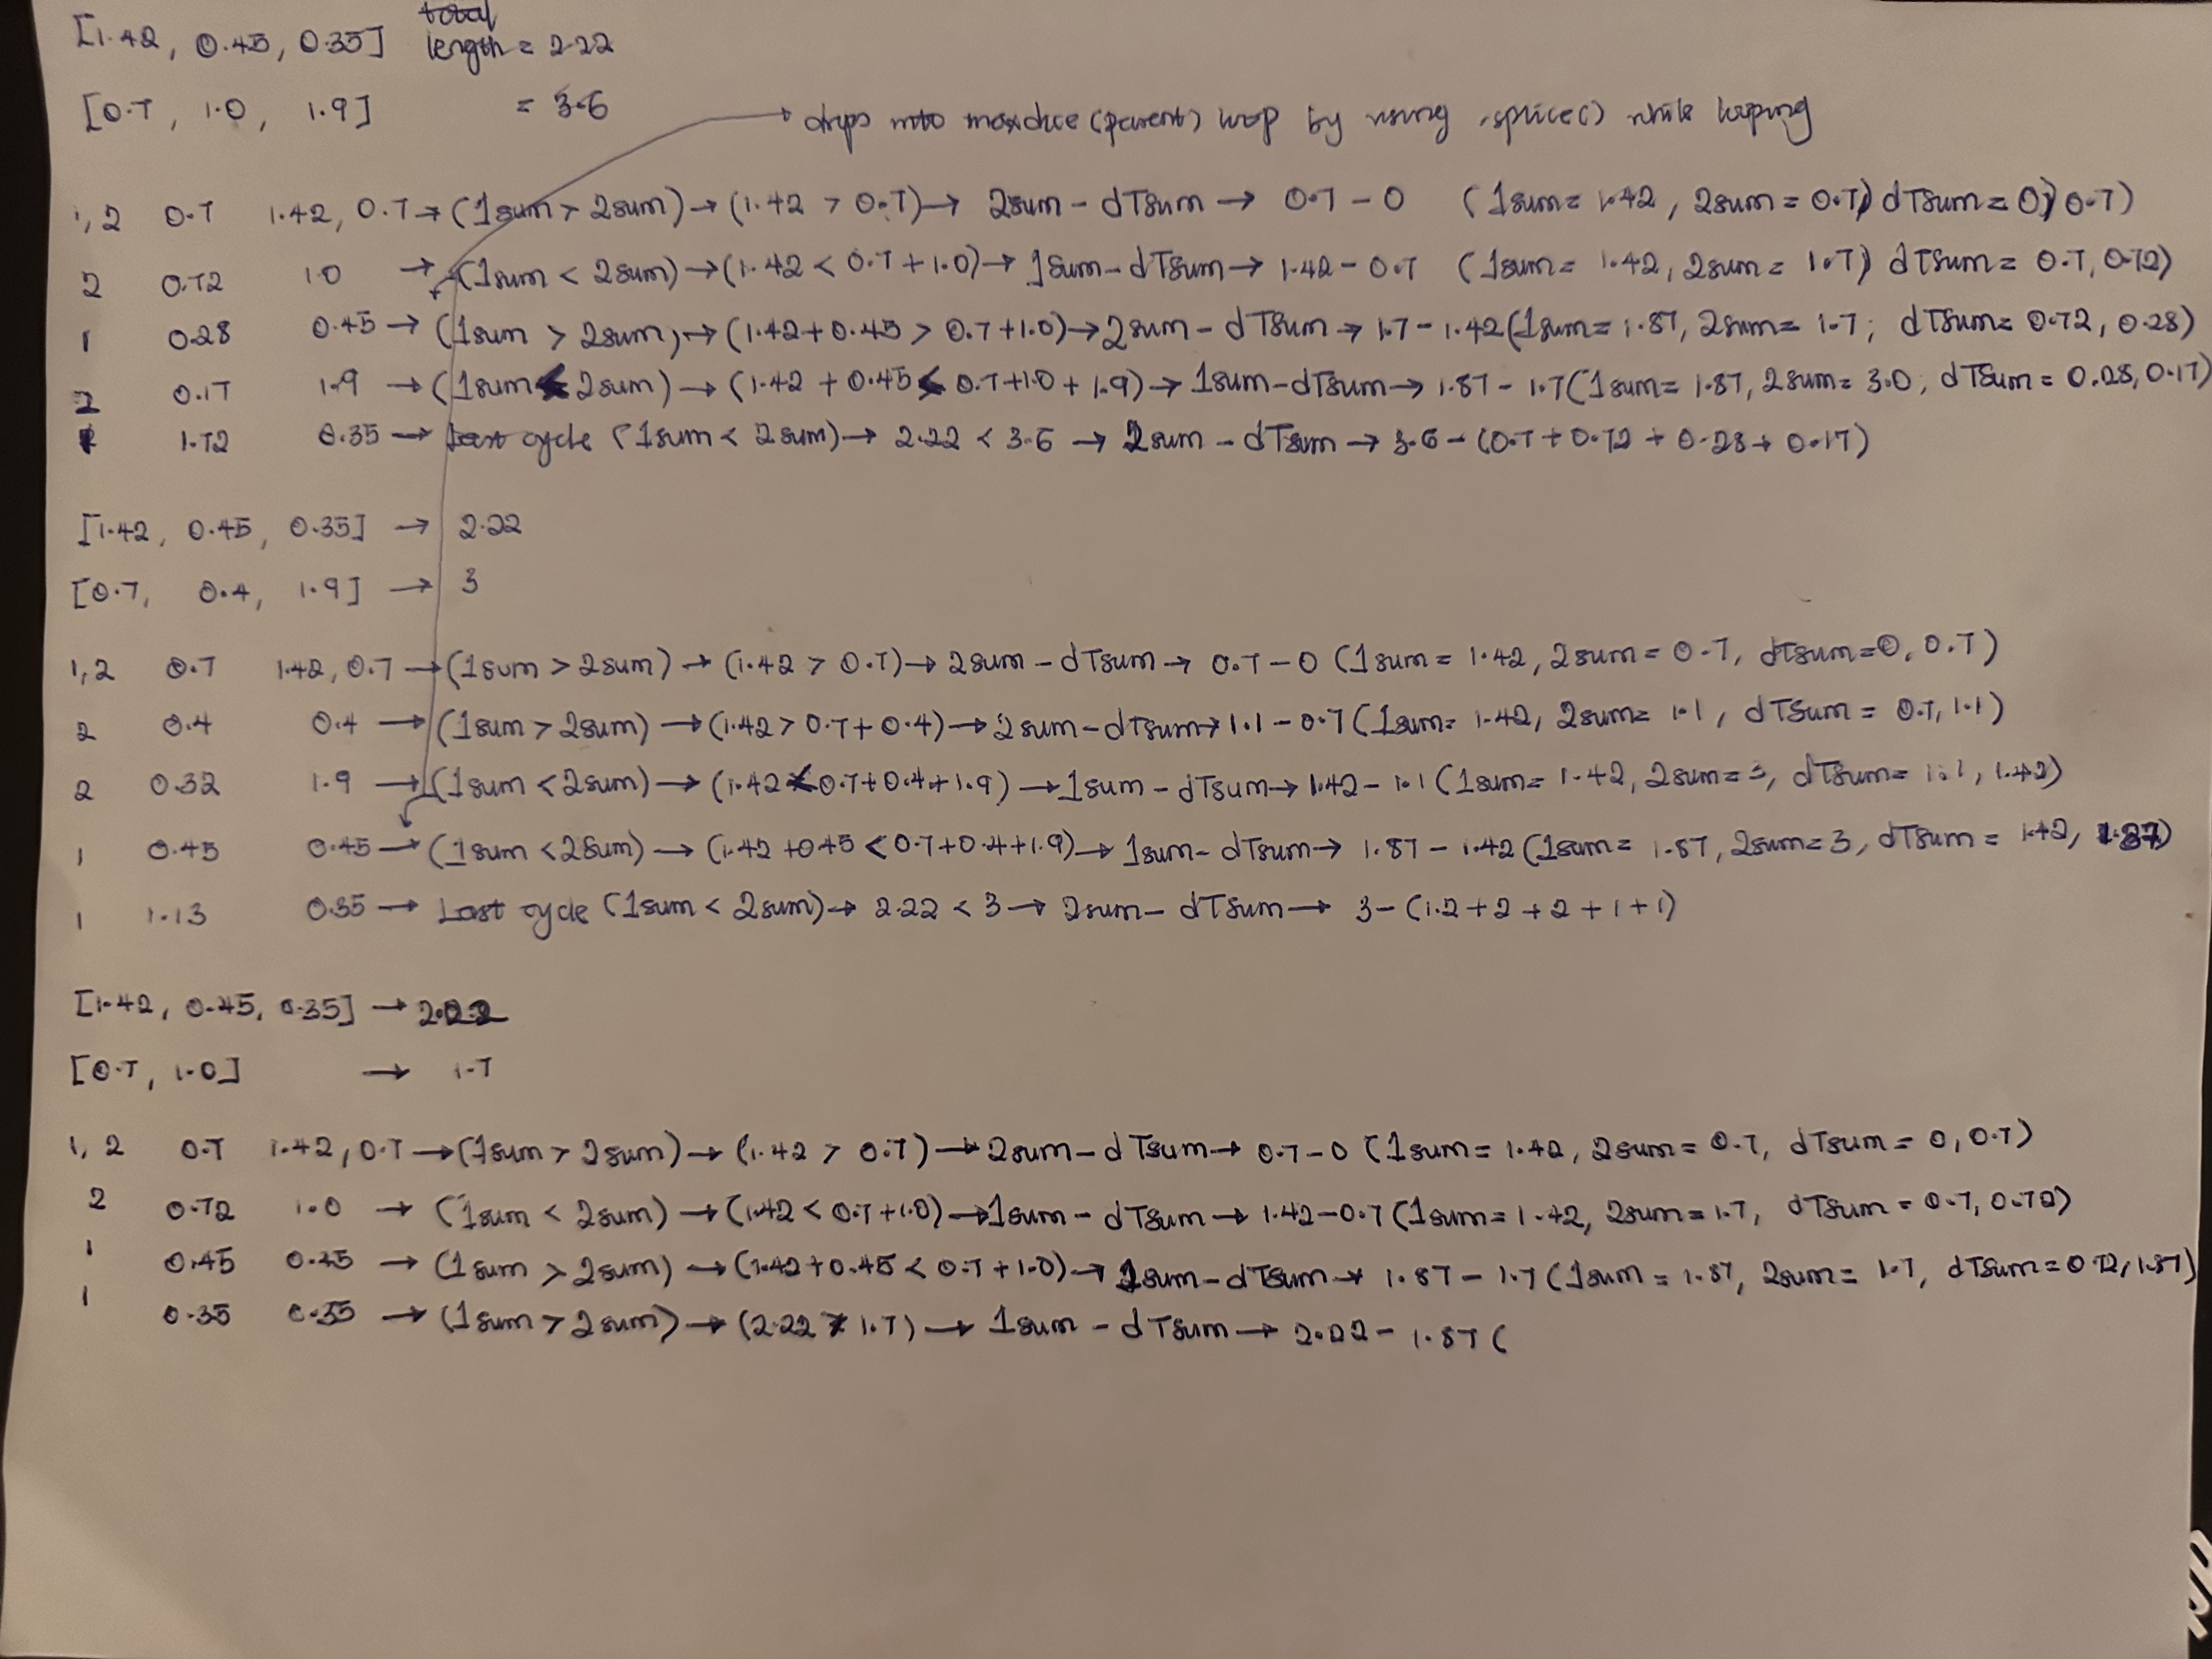 [1.42, 0.45, 0.35] total length = 2.22
[0.7, 1.0, 1.9] = 3.6
→ drop into maxdice(parent) loop by using .splice() while looping
1, 2 0.7 1.42, 0.7 → (1sum > 2sum) → (1.42 > 0.7) → 2sum - dTsum → 0.7 - 0 (1sum = 1.42, 2sum = 0.7) dTsum = 0, 0.7)
2 0.72 1.0 → (1sum < 2sum) → (1.42 < 0.7 + 1.0) → 1sum - dTsum → 1.42 - 0.7 (1sum = 1.42, 2sum = 1.7) dTsum = 0.7, 0.72)
1 0.28 0.45 → (1sum > 2sum) → (1.42 + 0.45 > 0.7 + 1.0) → 2sum - dTsum → 1.7 - 1.42 (1sum = 1.87, 2sum = 1.7; dTsum = 0.72, 0.28)
2 0.17 1.9 → (1sum < 2sum) → (1.42 + 0.45 < 0.7 + 1.0 + 1.9) → 1sum - dTsum → 1.87 - 1.7 (1sum = 1.87, 2sum = 3.0; dTsum = 0.28, 0.17)
1.72 0.35 → Last cycle (1sum < 2sum) → 2.22 < 3.6 → 2sum - dTsum → 3.6 - (0.7 + 0.72 + 0.28 + 0.17)
[1.42, 0.45, 0.35] → 2.22
[0.7, 0.4, 1.9] → 3
1, 2 0.7 1.42, 0.7 → (1sum > 2sum) → (1.42 > 0.7) → 2sum - dTsum → 0.7 - 0 (1sum = 1.42, 2sum = 0.7, dTsum = 0, 0.7)
2 0.4 0.4 → (1sum > 2sum) → (1.42 > 0.7 + 0.4) → 2sum - dTsum → 1.1 - 0.7 (1sum = 1.42, 2sum = 1.1, dTsum = 0.7, 1.1)
2 0.32 1.9 → (1sum < 2sum) → (1.42 < 0.7 + 0.4 + 1.9) → 1sum - dTsum → 1.42 - 1.1 (1sum = 1.42, 2sum = 3, dTsum = 1.1, 1.42)
1 0.45 0.45 → (1sum < 2sum) → (1.42 + 0.45 < 0.7 + 0.4 + 1.9) → 1sum - dTsum → 1.87 - 1.42 (1sum = 1.87, 2sum = 3, dTsum = 1.42, 1.87)
1 1.13 0.35 → Last cycle (1sum < 2sum) → 2.22 < 3 → 2sum - dTsum → 3 - (1.2 + 2 + 2 + 1 + 1)
[1.42, 0.45, 0.35] → 2.22
[0.7, 1.0] → 1.7
1, 2 0.7 1.42, 0.7 → (1sum > 2sum) → (1.42 > 0.7) → 2sum - dTsum → 0.7 - 0 (1sum = 1.42, 2sum = 0.7, dTsum = 0, 0.7)
2 0.72 1.0 → (1sum < 2sum) → (1.42 < 0.7 + 1.0) → 1sum - dTsum → 1.42 - 0.7 (1sum = 1.42, 2sum = 1.7, dTsum = 0.7, 0.72)
1 0.45 0.45 → (1sum > 2sum) → (1.42 + 0.45 < 0.7 + 1.0) → 1sum - dTsum → 1.87 - 1.7 (1sum = 1.87, 2sum = 1.7, dTsum = 0.72, 1.87)
1 0.35 0.35 → (1sum > 2sum) → (2.22 > 1.7) → 1sum - dTsum → 2.22 - 1.87 (